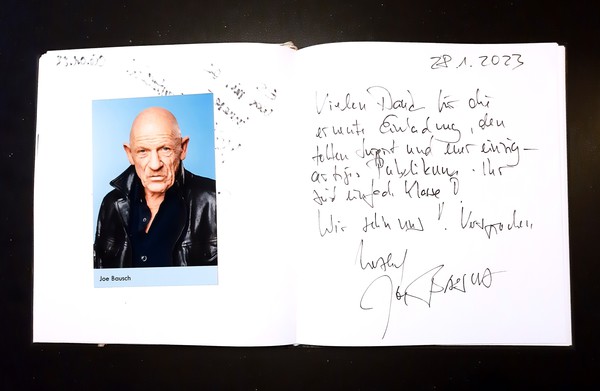 Joe Bausch
28.1.2023
Vielen Dank für die
erneute Einladung, den
tollen und eure einzig-
artiges Publikum. Ihr
seid einfach Klasse!
Wir sehn uns! Versprochen.
Joe Bausch